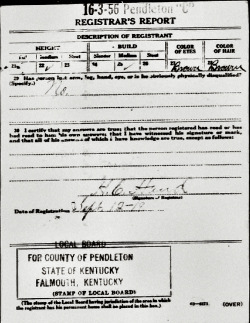 16-3-56 Pendleton "C"
REGISTRAR'S REPORT
DESCRIPTION OF REGISTRANT
HEIGHT BUILD COLOR OF EYES COLOR OF HAIR
Tall Medium Short Slender Medium Stout
Brown Brown
29 Has person lost arm, leg, hand, eye, or is he obviously physically disqualified?
(Specify.) No.
30 I certify that my answers are true; that the person registered has read or has
had read to him his own answers; that I have witnessed his signature or mark,
and that all of his answers of which I have knowledge are true, except as follows:
(Signature of Registrar)
Date of Registration Sept 12-18
LOCAL BOARD
FOR COUNTY OF PENDLETON
STATE OF KENTUCKY
FALMOUTH, KENTUCKY
(STAMP OF LOCAL BOARD)
(The stamp of the Local Board having jurisdiction of the area in which
the registrant has his permanent home shall be placed in this box.)
(OVER)